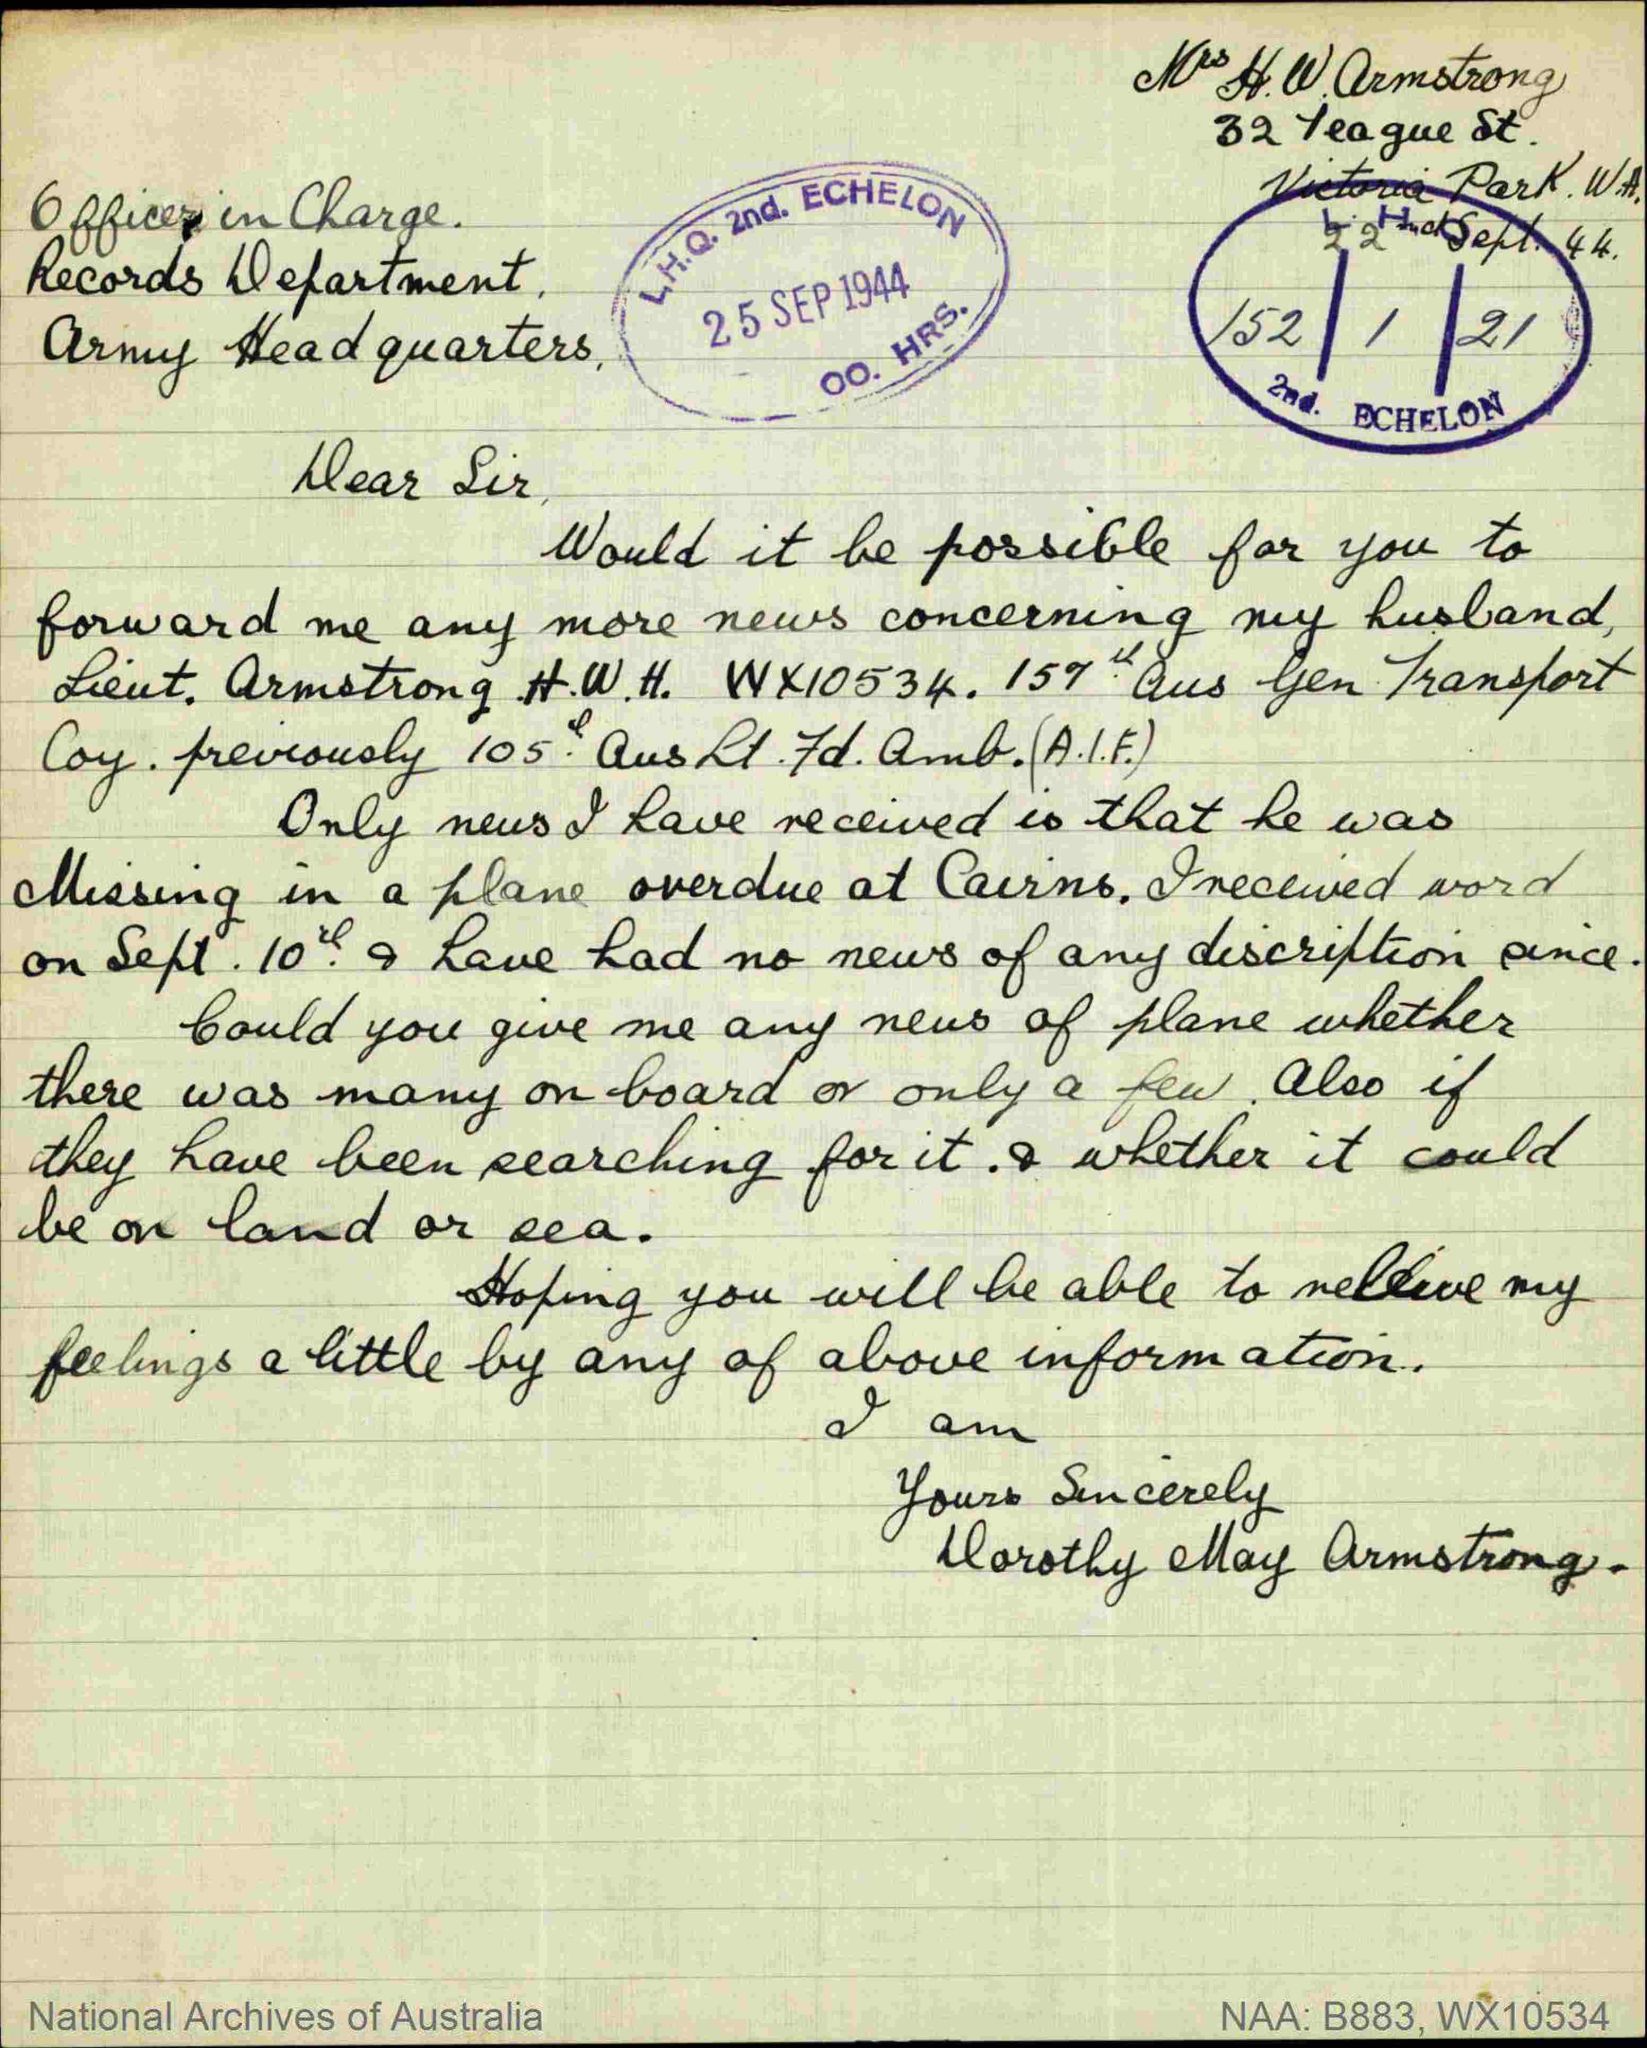 Mrs H. W. Armstrong
32 Teague St.
Victoria Park. W.A.
22nd Sept. 44.
Officer in Charge.
Records Department,
Army Headquarters,
L.H.Q. 2nd. ECHELON
25 SEP 1944
OO. HRS.
L. H.Q.
152 / 1 / 21
2nd. ECHELON
Dear Sir,
Would it be possible for you to
forward me any more news concerning my husband,
Lieut. Armstrong H.W.H. WX10534. 157th Aus Gen Transport
Coy. previously 105th Aus Lt. Fd. Amb. (A.I.F.)
Only news I have received is that he was
Missing in a plane overdue at Cairns. I received word
on Sept. 10th & have had no news of any discription since.
Could you give me any news of plane whether
there was many on board or only a few. Also if
they have been searching for it. & whether it could
be on land or sea.
Hoping you will be able to relieve my
feelings a little by any of above information.
I am
Yours Sincerely
Dorothy May Armstrong.
National Archives of Australia
NAA: B883, WX10534